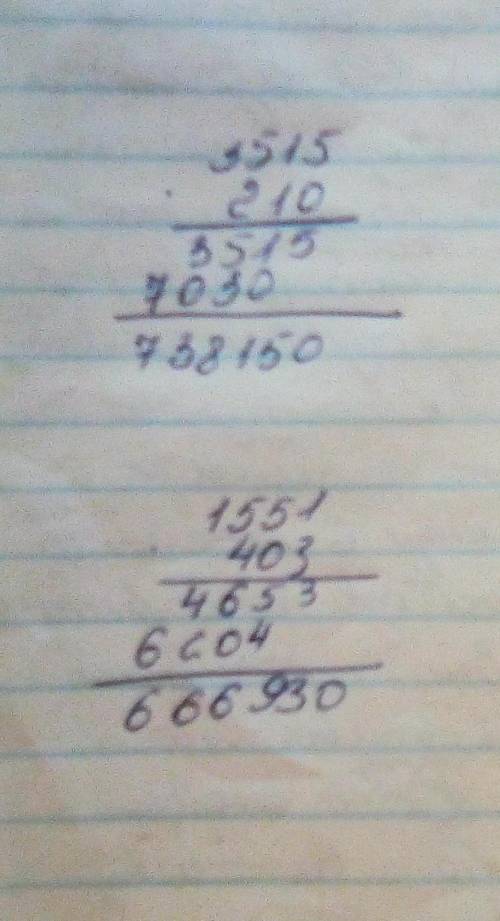 3515
· 210
3515
7030
738150
1551
· 403
4653
6204
666930